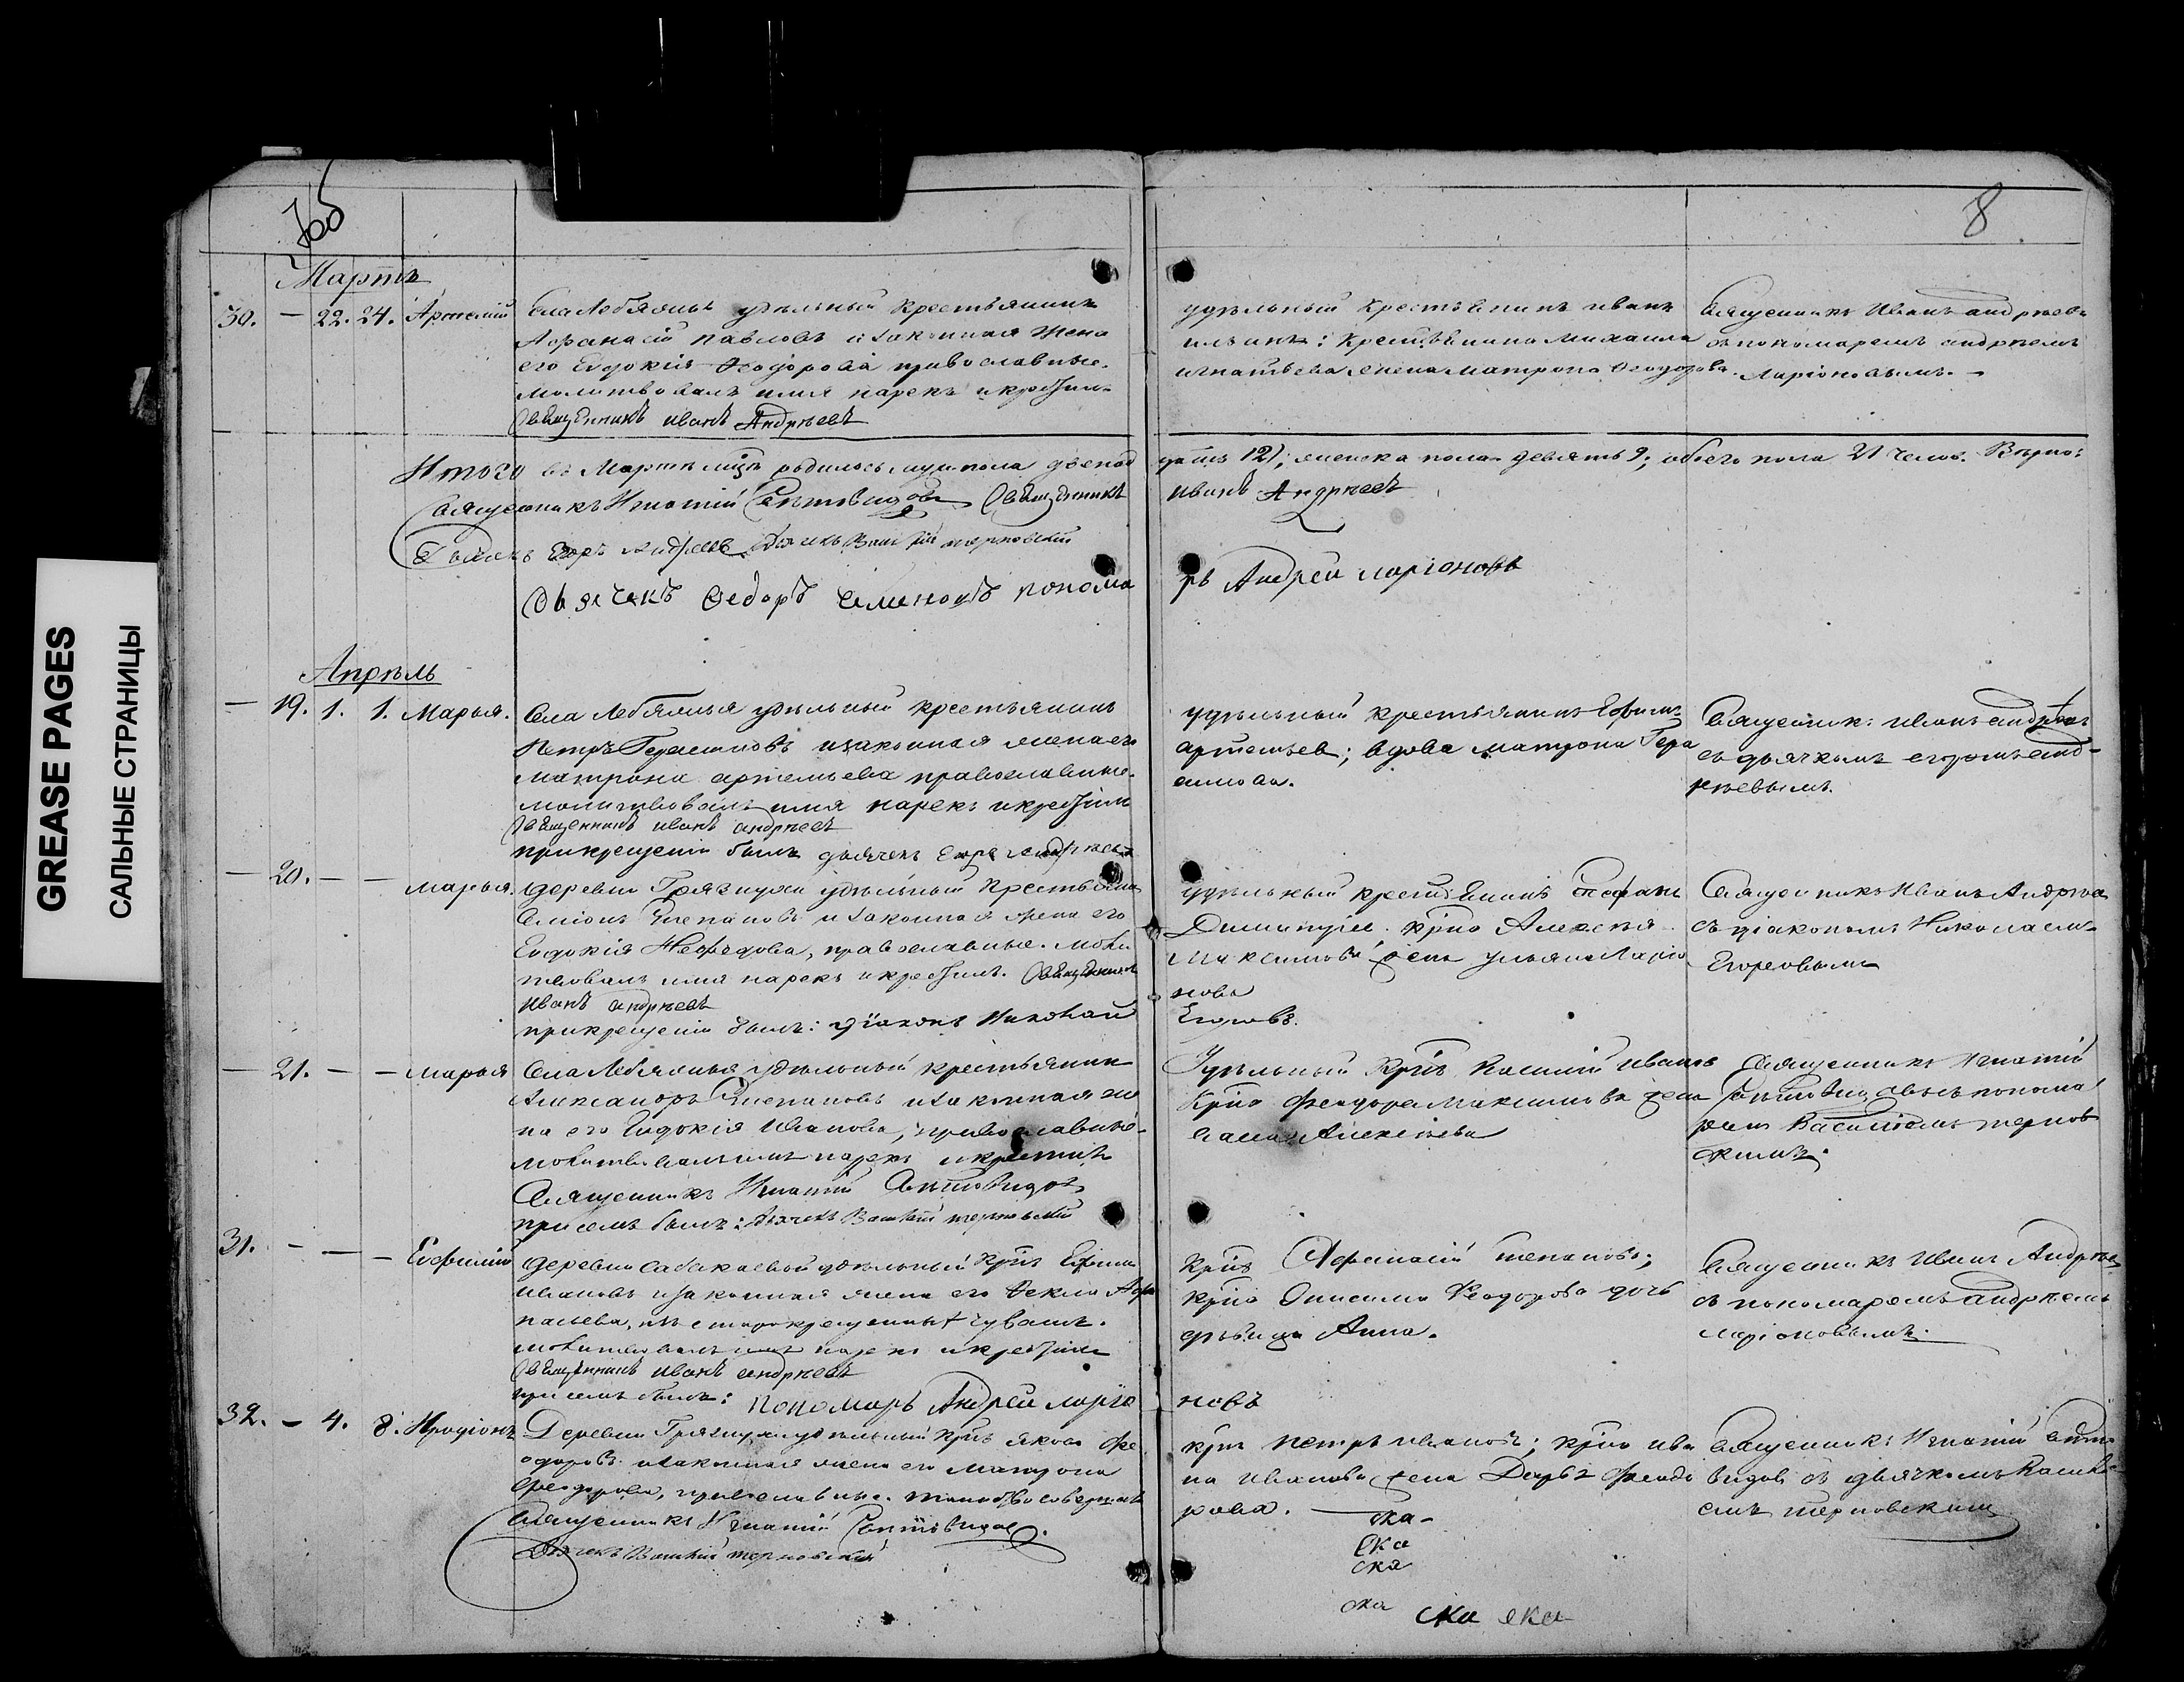 GREASE PAGES
САЛЬНЫЕ СТРАНИЦЫ
8
Мартъ
30. — 22. 24. Артемій
Села Лебяжья удѣльный крестьянинъ
Афанасій Павловъ и законная жена
его Евдокія Феодорова православные.
молитвовалъ имя нарекъ и крестилъ
Священникъ Иванъ Андреевъ
удѣльный крестьянинъ Иванъ
Ильинъ; крестьянина Михаила
Игнатьева жена Матрона Феодорова.
Священникъ Иванъ Андреевъ
съ пономаремъ Андреемъ
Ларіоновымъ.
Итого въ Мартѣ мцѣ родилось муж. пола двенад
цать 12), женска пола девять 9; обоего пола 21 челов. Вѣрно:
Священникъ Игнатій Свѣтовидовъ Священникъ
Иванъ Андреевъ
Дьячекъ Егоръ Андреевъ Дьячекъ Василій Терновскій
Дьячекъ Федоръ Семеновъ понома
рь Андрей Ларіоновъ
Апрѣль
— 19. 1. 1. Марья.
Села Лебяжья удѣльный крестьянинъ
Петръ Герасимовъ и законная жена его
Матрона Артемьева православные.
молитвовалъ имя нарекъ и крестилъ
Священникъ Иванъ Андреевъ
при крещеніи былъ дьячекъ Егоръ Андреевъ
удѣльный крестьянинъ Ефимъ
Артемьев; вдова Матрона Гера
симова.
Священникъ Иванъ Андреевъ
съ дьячкомъ Егоромъ Анд-
реевымъ.
— 20. — — Марья.
деревни Грязнухи удѣльный крестьянинъ
Семіонъ Степановъ и законная жена его
Евдокія Нефедова, православные. моли
твовалъ имя нарекъ и крестилъ. Священникъ
Иванъ Андреевъ
при крещеніи былъ: діаконъ Николай
удѣльный крестьянинъ Стефанъ
Димитріев. крна Алексѣя
Максимова жена Ульяна Ларіо
нова
Егоровъ.
Священникъ Иванъ Андреев
съ діакономъ Николаемъ
Егоровымъ
— 21. — — Марья
Села Лебяжья удѣльный крестьянин
Александръ Степановъ и законная же
на его Евдокія Иванова, православные.
молитвовалъ имя нарекъ и крестилъ
Священникъ Игнатій Свѣтовидовъ
при семъ былъ: Дьячекъ Василій Терновскій
Удѣльный крнъ Василій Ивановъ
крна Феодора Максимова жена
Алексѣева
Священникъ Игнатій
Свѣтовидовъ съ понома
ремъ Василіемъ Тернов
скимъ.
31. — — — Евфимій
деревни Сабакаевой удѣльный крнъ Ефимъ
Ивановъ и законная жена его Фекла Афа
насьева, изъ старокрещенныхъ чувашъ.
молитвовалъ имя нарекъ и крестилъ
Священникъ Иванъ Андреевъ
при семъ былъ: пономарь Андрей Ларіо
новъ
крнъ Афанасій Степановъ;
крна Онисима Феодорова дочь
дѣвица Анна.
Священникъ Иванъ Андреев
съ пономаремъ Андреемъ
Ларіоновымъ.
32. — 4. 8. Иродіонъ
Деревни Грязнухи удѣльный крнъ Яковъ Фе
одоровъ и законная жена его Матрона
Феодорова, православные. таинство совершалъ
Священникъ Игнатій Свѣтовидовъ.
Дьячекъ Василій Терновскій
крнъ Петръ Ивановъ; крна Ива
на Иванова жена Дарья Феодо
рова.
Священникъ Игнатій Свѣто
видовъ съ дьячкомъ Васили
емъ Терновскимъ
ска
ска
ска
ска
ска ска